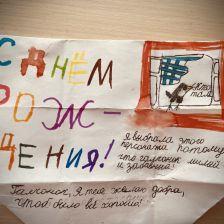 С ДНЁМ
РОЖ-
ДЕНИЯ!
Я выбрала этого
персонажа потому
что галчонок милый
и забавный!
Галчонок, я тебе желаю добра,
чтоб было всё хорошо!